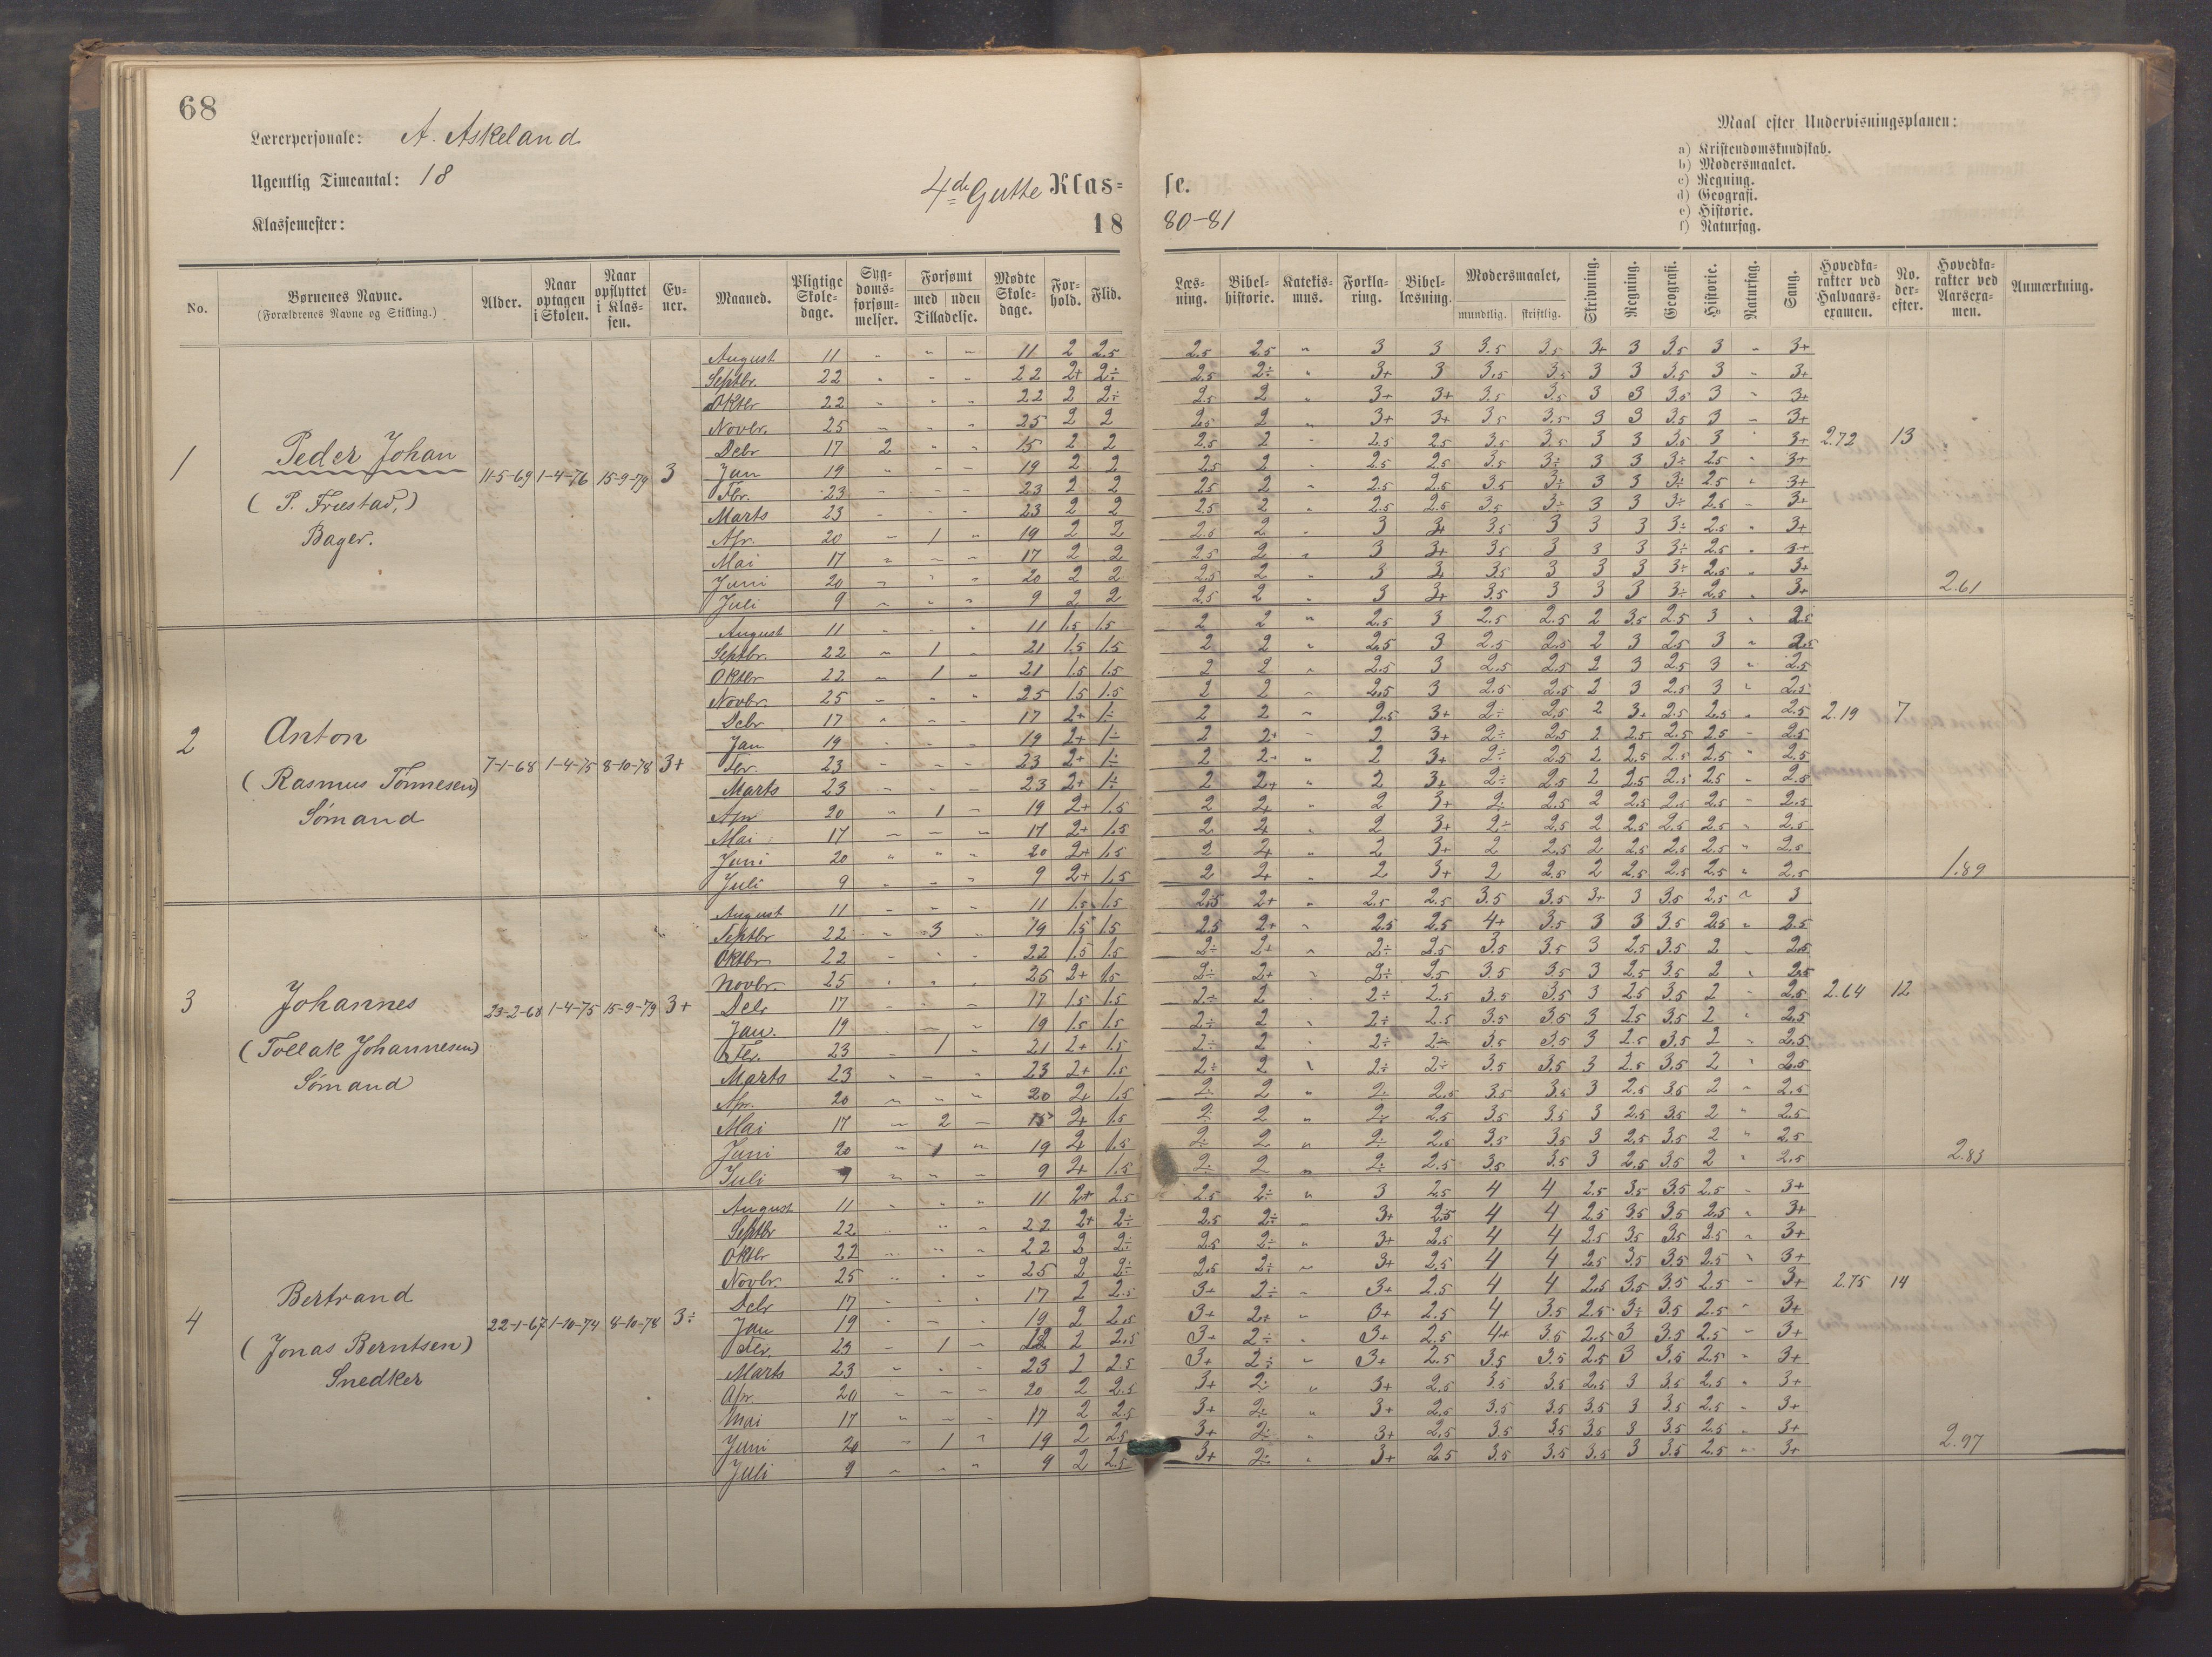 68
Lærerpersonale: A. Askeland
Ugentlig Timeantal: 18
Klassemester:
4de Gutte Klasse.
1880-81
Maal efter Undervisningsplanen:
a) Kristendomskundskab.
b) Modersmaalet.
c) Regning.
d) Geografi.
e) Historie.
f) Naturfag.
No. | Børnenes Navne. (Forældrenes Navne og Stilling.) | Alder. | Naar optagen i Skolen. | Naar opflyttet i Klassen. | Evner. | Maaned. | Pligtige Skoledage. | Sygdomsforsømmelser. | Forsømt med uden Tilladelse. | Mødte Skoledage. | Forhold. | Flid. | Læsning. | Bibelhistorie. | Katekismus. | Forklaring. | Bibellæsning. | Modersmaalet, mundtlig. skriftlig. | Skrivning. | Regning. | Geografi. | Historie. | Naturfag. | Sang. | Hovedkarakter ved Halvaarsexamen. | No. derefter. | Hovedkarakter ved Aarsexamen. | Anmærkning.
1 Peder Johan (P. Fruestad,) Bager. 11-5-69 1-4-76 15-9-79 3
August 11 " " " 11 2 2.5 2.5 2.5 " 3 3 3.5 3.5 3+ 3 3.5 3 " 3+
Septbr. 22 " " " 22 2+ 2÷ 2.5 2÷ " 3+ 3 3.5 3.5 3 3 3.5 3 " 3+
Oktbr 22 " " " 22 2 2÷ 2.5 2 " 3+ 3+ 3.5 3.5 3 3 3.5 3 " 3+
Novbr. 25 " " " 25 2 2 2.5 2 " 3+ 3+ 3.5 3.5 3 3 3.5 3 " 3+
Debr 17 2 " " 15 2 2 2.5 2 " 2.5 2.5 3.5 3.5 3 3 3.5 3 " 3+ 2.72 13
Jan 19 " " " 19 2 2 2.5 2 " 2.5 2.5 3.5 3÷ 3 3 3÷ 2.5 " 3+
Fbr. 23 " " " 23 2 2 2.5 2 " 2.5 2.5 3.5 3÷ 3 3 3÷ 2.5 " 3+
Marts 23 " " " 23 2 2 2.5 2 " 2.5 2.5 3.5 3÷ 3 3 3÷ 2.5 " 3+
Apr. 20 " 1 " 19 2 2 2.5 2 " 3 3+ 3.5 3 3 3 3÷ 2.5 " 3+
Mai 17 " " " 17 2 2 2.5 2 " 3 3+ 3.5 3 3 3 3÷ 2.5 " 3+
Juni 20 " " " 20 2 2 2.5 2 " 3 3+ 3.5 3 3 3 3÷ 2.5 " 3+
Juli 9 " " " 9 2 2 2.5 2 " 3 3+ 3.5 3 3 3 3÷ 2.5 " 3+ 2.61
2 Anton (Rasmus Tönnesen) Sömand 7-1-68 1-4-75 8-10-78 3+
August 11 " " " 11 1.5 1.5 2 2 " 2.5 3 2.5 2.5 2 3.5 2.5 3 " 2.5
Septbr. 22 " 1 " 21 1.5 1.5 2 2 " 2.5 3 2.5 2.5 2 3 2.5 3 " 2.5
Oktbr 22 " 1 " 21 1.5 1.5 2 2 " 2.5 3 2.5 2.5 2 3 2.5 3 " 2.5
Novbr. 25 " " " 25 1.5 1.5 2 2 " 2.5 3 2.5 2.5 2 3 2.5 3 " 2.5
Debr 17 " " " 17 2+ 1÷ 2 2 " 2.5 3+ 2÷ 2.5 2 3+ 2.5 2.5 " 2.5 2.19 7
Jan 19 " " " 19 2+ 1÷ 2 2+ " 2 3+ 2÷ 2.5 2 2.5 2.5 2.5 " 2.5
Fbr. 23 " " " 23 2+ 1÷ 2 2+ " 2 3+ 2÷ 2.5 2 2.5 2.5 2.5 " 2.5
Marts 23 " " " 23 2+ 1÷ 2 2+ " 2 3+ 2÷ 2.5 2 2.5 2.5 2.5 " 2.5
Apr 20 " 1 " 19 2+ 1.5 2 2+ " 2 3+ 2÷ 2.5 2 2.5 2.5 2.5 " 2.5
Mai 17 " " " 17 2+ 1.5 2 2+ " 2 3+ 2÷ 2.5 2 2.5 2.5 2.5 " 2.5
Juni 20 " " " 20 2+ 1.5 2 2+ " 2 3+ 2 2.5 2 2.5 2.5 2.5 " 2.5
Juli 9 " " " 9 2+ 1.5 2 2+ " 2 3+ 2 2.5 2 2.5 2.5 2.5 " 2.5 1.89
3 Johannes (Tollak Johannesen) Sömand 23-2-68 1-4-75 15-9-79 3+
August 11 " " " 11 1.5 1.5 2.5 2+ " 2.5 2.5 3.5 3.5 3+ 3 3.5 2.5 " 3
Septbr 22 " 3 " 19 1.5 1.5 2.5 2+ " 2.5 2.5 4+ 3.5 3 3 3.5 2.5 " 2.5
Oktbr 22 " " " 22 1.5 1.5 2÷ 2+ " 2÷ 2.5 3.5 3.5 3 2.5 3.5 2 " 2.5
Novbr. 25 " " " 25 2+ 1.5 2÷ 2+ " 2÷ 2.5 3.5 3.5 3 2.5 3.5 2 " 2.5
Debr 17 " " " 17 1.5 1.5 2÷ 2 " 2÷ 2.5 3.5 3.5 3 2.5 3.5 2 " 2.5 2.64 12
Jan. 19 " " " 19 1.5 1.5 2÷ 2 " 2÷ 2.5 3.5 3.5 3 2.5 3.5 2 " 2.5
Fbr. 23 " 1 " 21 2+ 1.5 2÷ 2 " 2÷ 2÷ 3.5 3.5 3 2.5 3.5 2 " 2.5
Marts 23 " " " 23 2+ 1.5 2÷ 2 " 2÷ 2÷ 3.5 3.5 3 2.5 3.5 2 " 2.5
Apr. 20 " " " 20 2+ 1.5 2÷ 2 " 2÷ 2.5 3.5 3.5 3 2.5 3.5 2 " 2.5
Mai 17 " 2 " 15 2+ 1.5 2÷ 2 " 2÷ 2.5 3.5 3.5 3 2.5 3.5 2 " 2.5
Juni 20 " 1 " 19 2+ 1.5 2÷ 2 " 2÷ 2.5 3.5 3.5 3 2.5 3.5 2 " 2.5
Juli 9 " " " 9 2+ 1.5 2÷ 2 " 2÷ 2.5 3.5 3.5 3 2.5 3.5 2 " 2.5 2.83
4 Bertrand (Jonas Berntsen) Snedker 22-1-67 1-10-74 8-10-78 3÷
August 11 " " " 11 2+ 2.5 2.5 2÷ " 3 2.5 4 4 2.5 3.5 3.5 2.5 " 3+
Septbr 22 " " " 22 2+ 2÷ 2.5 2÷ " 3+ 2.5 4 4 2.5 3.5 3.5 2.5 " 3+
Oktbr 22 " " " 22 2 2÷ 2.5 2÷ " 3+ 2.5 4 4 2.5 3.5 3.5 2.5 " 3+
Novbr. 25 " " " 25 2 2÷ 2.5 2÷ " 3+ 2.5 4 4 2.5 3.5 3.5 2.5 " 3+
Debr 17 " " " 17 2 2.5 3+ 2÷ " 3+ 2.5 4 4 2.5 3.5 3.5 2.5 " 3+ 2.75 14
Jan 19 " " " 19 2 2.5 3+ 2+ " 3+ 2.5 4 3.5 2.5 3÷ 3.5 2.5 " 3+
Febr. 23 " 1 " 2 2.5 3+ 2÷ " 3+ 2.5 4+ 3.5 2.5 3 3.5 2.5 " 3+
Marts 23 " " " 23 2 2.5 3+ 2÷ " 3+ 2.5 3.5 3.5 2.5 3 3.5 2.5 " 3+
Apr. 20 " " " 20 2 2.5 3+ 2÷ " 3+ 2.5 3.5 3.5 2.5 3 3.5 2.5 " 3+
Mai 17 " " " 17 2 2.5 3+ 2÷ " 3+ 2.5 3.5 3.5 3.5 3 3.5 2.5 " 3+
Juni 20 " 1 " 19 2 2.5 3+ 2÷ " 3+ 2.5 3.5 3.5 3.5 3 3.5 2.5 " 3+
Juli 9 " " " 9 2 2.5 3+ 2÷ " 3+ 2.5 3.5 3.5 3.5 3 3.5 2.5 " 3+ 2.97